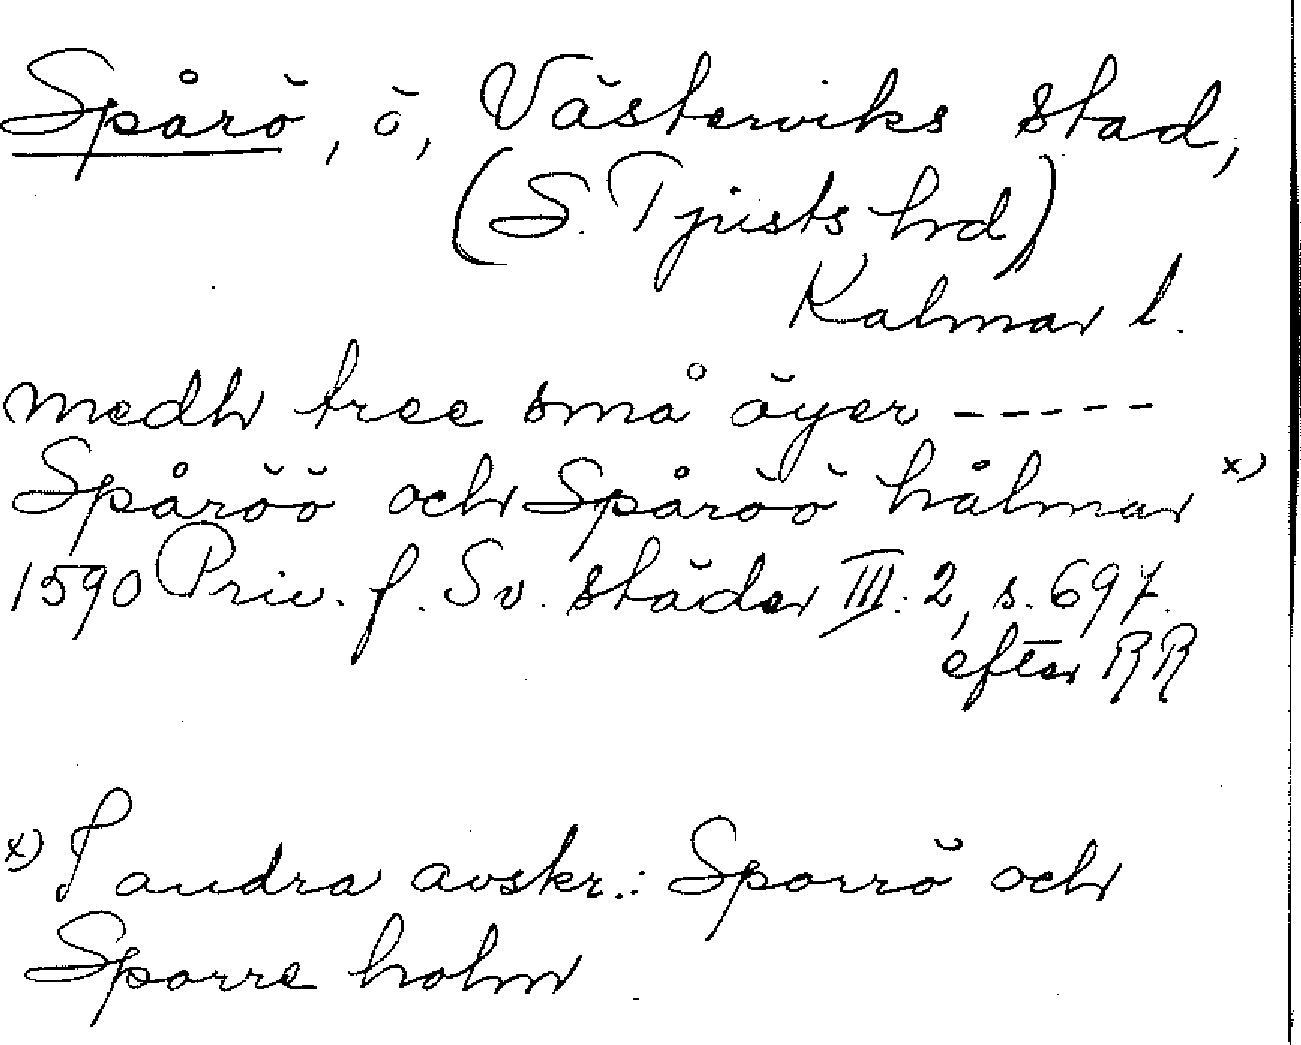 Spårö, ö, Västerviks stad,
(S. Tjusts hrd)
Kalmar l.
medh tree små öyer -----
Spåröö och Spåröö hålmar x)
1590 Priv. f. Sv. städer III: 2, s. 697.
efter RR
x) I andra avskr.: Sporrö och
Sporre holm